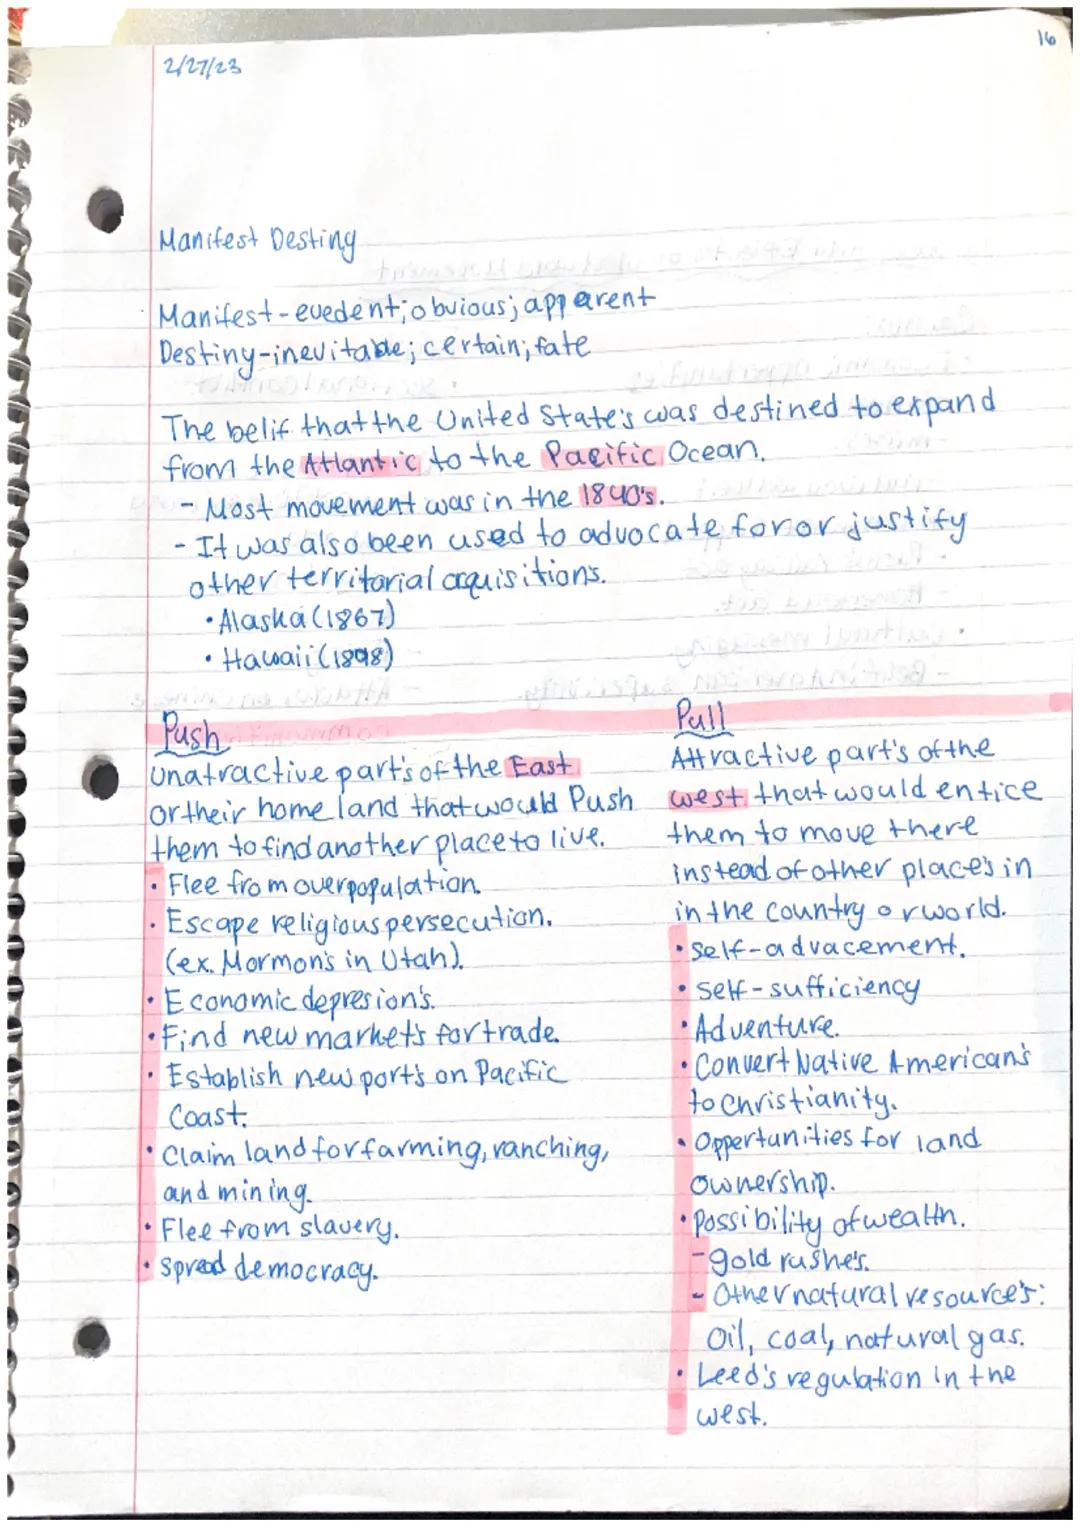 16
2/27/23
Manifest Destiny
Manifest-evedent; obvious; apparent
Destiny-inevitable; certain; fate
The belif that the United State's was destined to expand
from the Atlantic to the Pacific Ocean.
- Most movement was in the 1840's.
- It was also been used to advocate for or justify
other territorial acquisitions.
• Alaska (1867)
• Hawaii (1898)
Push
Unatractive part's of the East
or their home land that would Push
them to find another place to live.
• Flee from overpopulation.
• Escape religious persecution.
(ex. Mormon's in Utah).
• Economic depresion's.
• Find new market's for trade.
• Establish new port's on Pacific
Coast.
• Claim land for farming, ranching,
and mining.
• Flee from slavery.
• spread democracy.
Pull
Attractive part's of the
west that would entice
them to move there
instead of other place's in
in the country or world.
• self-advacement.
• self-sufficiency
• Adventure.
• Convert Native American's
to Christianity.
• Oppertunities for land
ownership.
• Possibility of wealth.
- gold rushe's.
- Other natural resource's:
Oil, coal, natural gas.
• Leed's regulation in the
west.